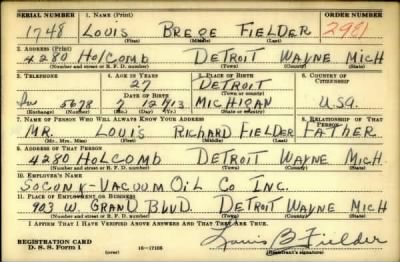 SERIAL NUMBER 1. NAME (Print) ORDER NUMBER
1748 LOUIS BREDE FIELDER 2981
(First) (Middle) (Last)
2. ADDRESS (Print)
4280 HOLCOMB DETROIT WAYNE MICH
(Number and street or R. F. D. number) (Town) (County) (State)
3. TELEPHONE 4. AGE IN YEARS 5. PLACE OF BIRTH 6. COUNTRY OF CITIZENSHIP
27 DETROIT
DATE OF BIRTH (Town or county)
5678 7 12 1913 MICHIGAN U.S.A.
(Exchange) (Number) (Mo.) (Day) (Yr.) (State or country)
7. NAME OF PERSON WHO WILL ALWAYS KNOW YOUR ADDRESS 8. RELATIONSHIP OF THAT PERSON
MR. LOUIS RICHARD FIELDER FATHER
(Mr., Mrs., Miss) (First) (Middle) (Last)
9. ADDRESS OF THAT PERSON
4280 HOLCOMB DETROIT WAYNE MICH.
(Number and street or R. F. D. number) (Town) (County) (State)
10. EMPLOYER'S NAME
SOCONY-VACUUM OIL CO INC.
11. PLACE OF EMPLOYMENT OR BUSINESS
903 W. GRAND BLVD. DETROIT WAYNE MICH
(Number and street or R. F. D. number) (Town) (County) (State)
I AFFIRM THAT I HAVE VERIFIED ABOVE ANSWERS AND THAT THEY ARE TRUE.
REGISTRATION CARD Louis B Fielder
D. S. S. FORM 1 (over) 16-17105 (Registrant's signature)